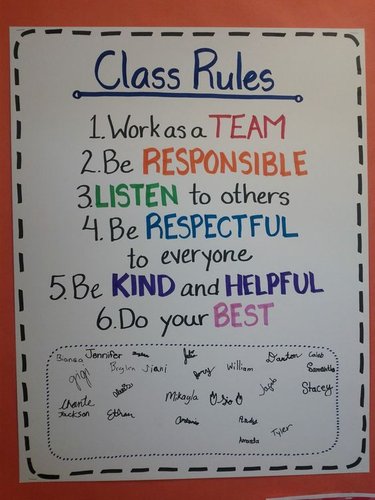 Class Rules
1. Work as a TEAM
2. Be RESPONSIBLE
3. LISTEN to others
4. Be RESPECTFUL
to everyone
5. Be KIND and HELPFUL
6. Do your BEST
Bianca Jennifer Julie Daxton Caleb
Gigi Brylin Siani Jerry William Samantha
Chante Mikayla Jayde Stacey
Jackson Ethan Tyler
Amanda